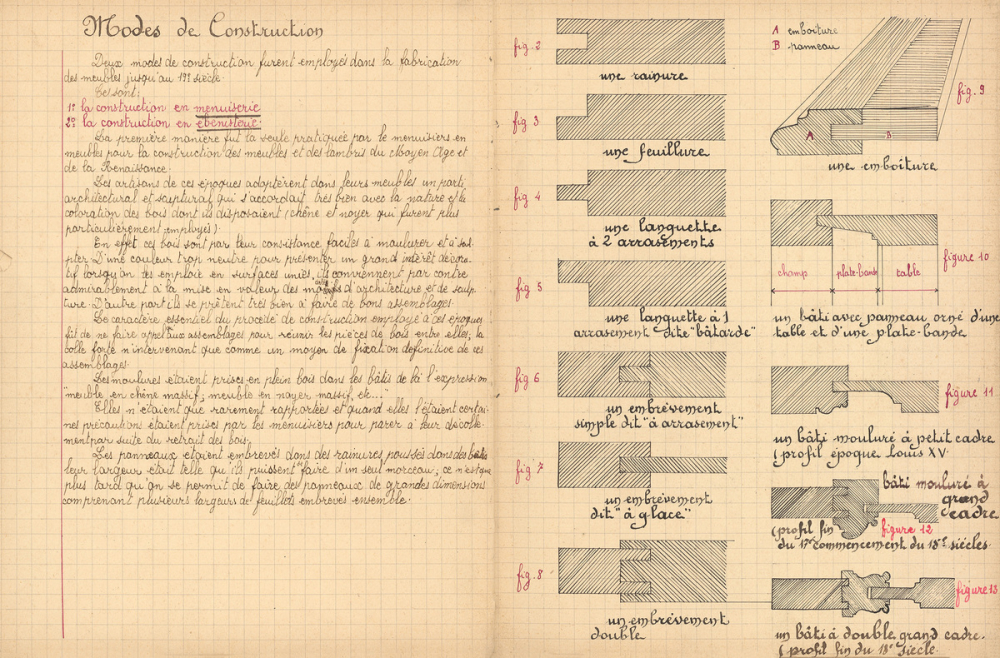 Modes de Construction
Deux modes de construction furent employés dans la fabrication
des meubles jusqu'au 19e siècle.
Ce sont:
1º la construction en menuiserie
2º la construction en ébénisterie.
La première manière fut la seule pratiquée par le menuisiers en
meubles pour la construction des meubles et des lambris du Moyen Age et
de la Renaissance.
Les artisans de ces époques adoptèrent dans leurs meubles un parti
architectural et sculptural qui s'accordait très bien avec la nature et la
coloration des bois dont ils disposaient (chêne et noyer qui furent plus
particulièrement employés)
En effet ces bois sont par leur consistance faciles à moulurer et à scul
pter D'une couleur trop neutre pour présenter un grand intérêt décora-
tif lorsqu'on les emploie en surfaces unies, ils conviennent par contre
admirablement à la mise en valeur des d'architecture et de sculp
ture. D'autre part ils se prêtent très bien à faire de bons assemblages.
Le caractère essentiel du procédé de construction employé à ces époques
fit de ne faire appel aux assemblages pour réunir les pièces de bois entre elles; la
colle forte n'intervenant que comme un moyen de fixation définitive de ces
assemblages.
Les moulures étaient prises en plein bois dans les bâtis de là l'expression
"meuble en chêne massif; meuble en noyer massif, etc..."
Elles n'étaient que rarement rapportées et quand elles l'étaient certai-
nes précautions étaient prises par les menuisiers pour parer à leur décolle-
ment par suite du retrait des bois.
Les panneaux étaient embrevés dans des rainures poussés dans des bâtis
leur largeur était telle qu'ils puissent faire d'un seul morceau; ce n'est que
plus tard qu'on se permit de faire des panneaux de grandes dimensions
comprenant plusieurs largeurs de feuillets embrevés ensemble.
fig. 2
une rainure
fig 3
une feuillure
fig 4
une languette
à 2 arrasements
fig 5
une languette à 1
arrasement dite "bâtarde"
fig 6
un embrèvement
simple dit "à arrasement"
fig. 7
un embrèvement
dit "à glace"
fig. 8
un embrèvement
double
A emboiture
B panneau
fig. 9
A
B
une emboiture
figure 10
champ
plate-bande
table
un bâti avec panneau orné d'une
table et d'une plate-bande
figure 11
un bâti mouluré à petit cadre
(profil époque Louis XV
bâti mouluré à
grand
cadre
figure 12
(profil fin
du 17e commencement du 18e siècles
figure 13
un bâti à double grand cadre.
(profil fin du 18e siècle